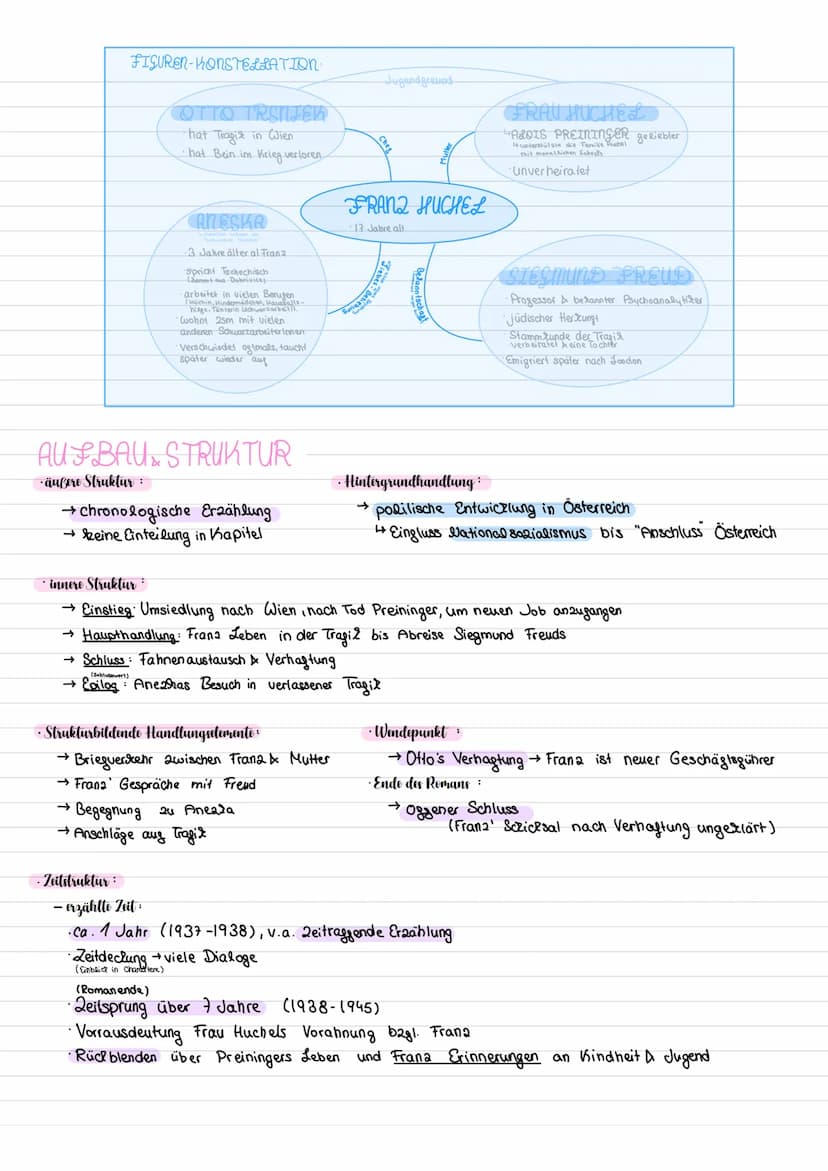 FIGUREN-KONSTELLATION:
Jugendfreund
OTTO TRSNJEK
· hat Trafik in Wien
· hat Bein im Krieg verloren
Chef
Mutter
FRAU HUCHEL
↳ ALOIS PREININGER geliebter
↳ unterstützte die Familie Huchel
mit monatlichen Schecks
· unverheiratet
FRANZ HUCHEL
· 17 Jahre alt
ANESKA
· 3 Jahre älter al Franz
· spricht Tschechisch
· arbeitet in vielen Berufen
· wohnt zsm mit vielen
anderen SchwarzarbeiterInnen
· Verschwindet oftmals, taucht
später wieder auf
Bekanntschaft
SIEGMUND FREUD
· Professor & bekannter Psychoanalytiker
· jüdischer Herkunft
· Stammkunde der Trafik
verheiratet & eine Tochter
· Emigriert später nach London
AUFBAU & STRUKTUR
· äußere Struktur :
→ chronologische Erzählung
→ keine Einteilung in Kapitel
· Hintergrundhandlung :
→ politische Entwicklung in Österreich
↳ Einfluss Nationalsozialismus bis "Anschluss" Österreich
· innere Struktur :
→ Einstieg: Umsiedlung nach Wien, nach Tod Preininger, um neuen Job anzufangen
→ Haupthandlung: Franz Leben in der Trafik bis Abreise Siegmund Freuds
→ Schluss: Fahnenaustausch & Verhaftung
(Schlusswort)
→ Epilog : Anezkas Besuch in verlassener Trafik
· Strukturbildende Handlungselemente:
→ Briefverkehr zwischen Franz & Mutter
→ Franz' Gespräche mit Freud
→ Begegnung zu Anezka
→ Anschläge auf Trafik
· Wendepunkt :
→ Otto's Verhaftung → Franz ist neuer Geschäftsführer
· Ende des Romans :
→ offener Schluss
(Franz' Schicksal nach Verhaftung ungeklärt)
· Zeitstruktur :
– erzählte Zeit:
· ca. 1 Jahr (1937-1938), v.a. zeitraffende Erzählung
· Zeitdeckung → viele Dialoge
(Einblick in Charaktere)
(Romanende)
· Zeitsprung über 7 Jahre (1938-1945)
· Vorrausdeutung Frau Huchels Vorahnung bzgl. Franz
· Rückblenden über Preiningers Leben und Franz Erinnerungen an Kindheit & Jugend